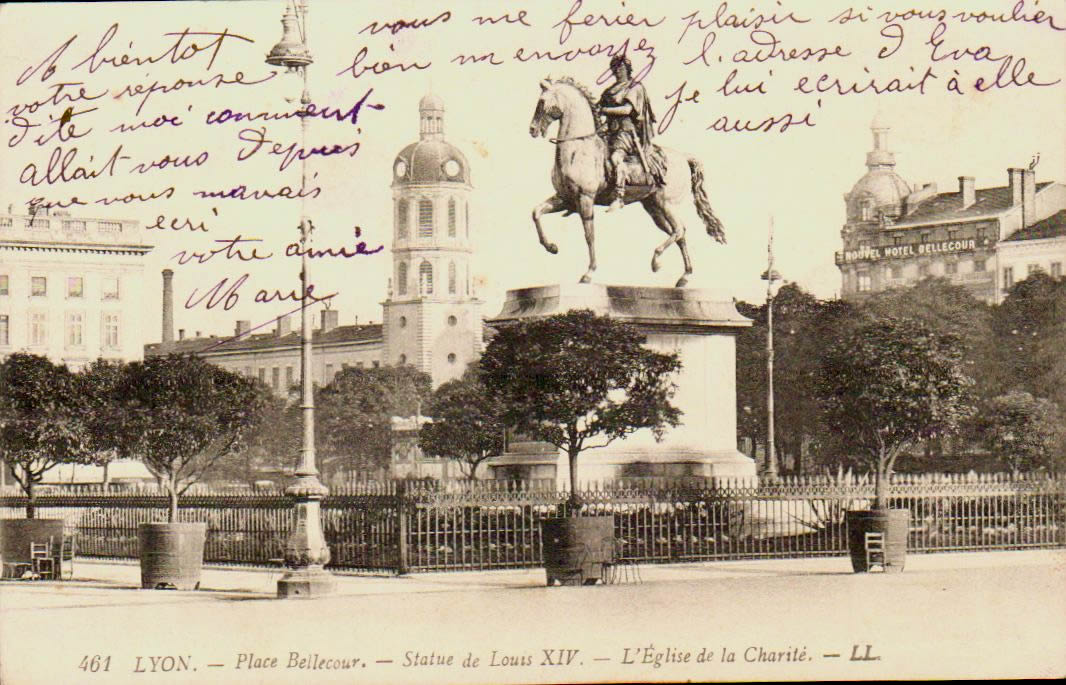 A bientot
votre réponse
dite moi comment
allait vous depuis
que vous mavais
ecri
votre amie
Marie
vous me ferier plaisir si vous voulier
bien m envoyez l'adresse d Eva
je lui ecrirait à elle
aussi
NOUVEL HOTEL BELLECOUR
461 LYON. — Place Bellecour. — Statue de Louis XIV. — L'Église de la Charité. — LL.